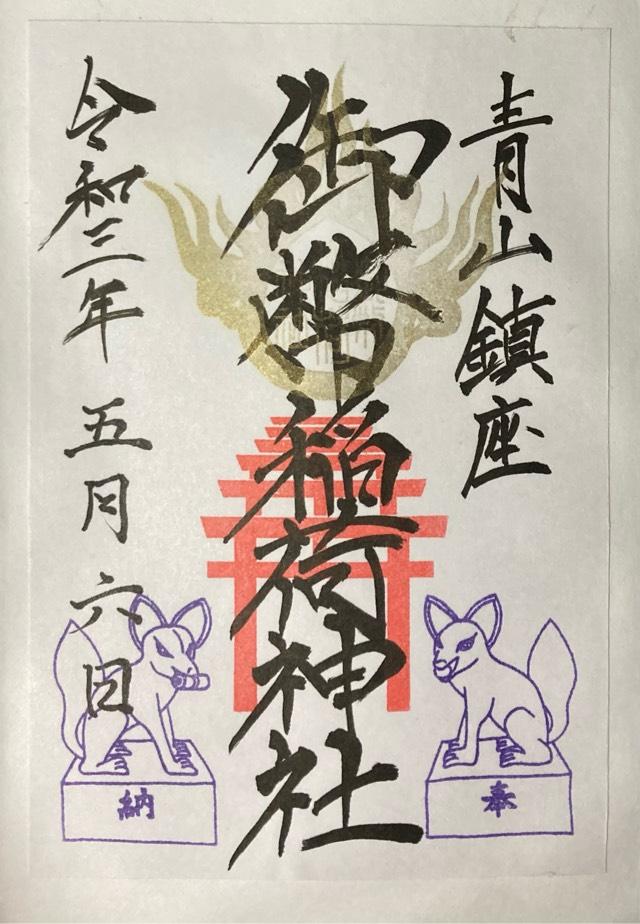 青山鎮座
御幣稲荷神社
令和三年 五月 六日
奉
納